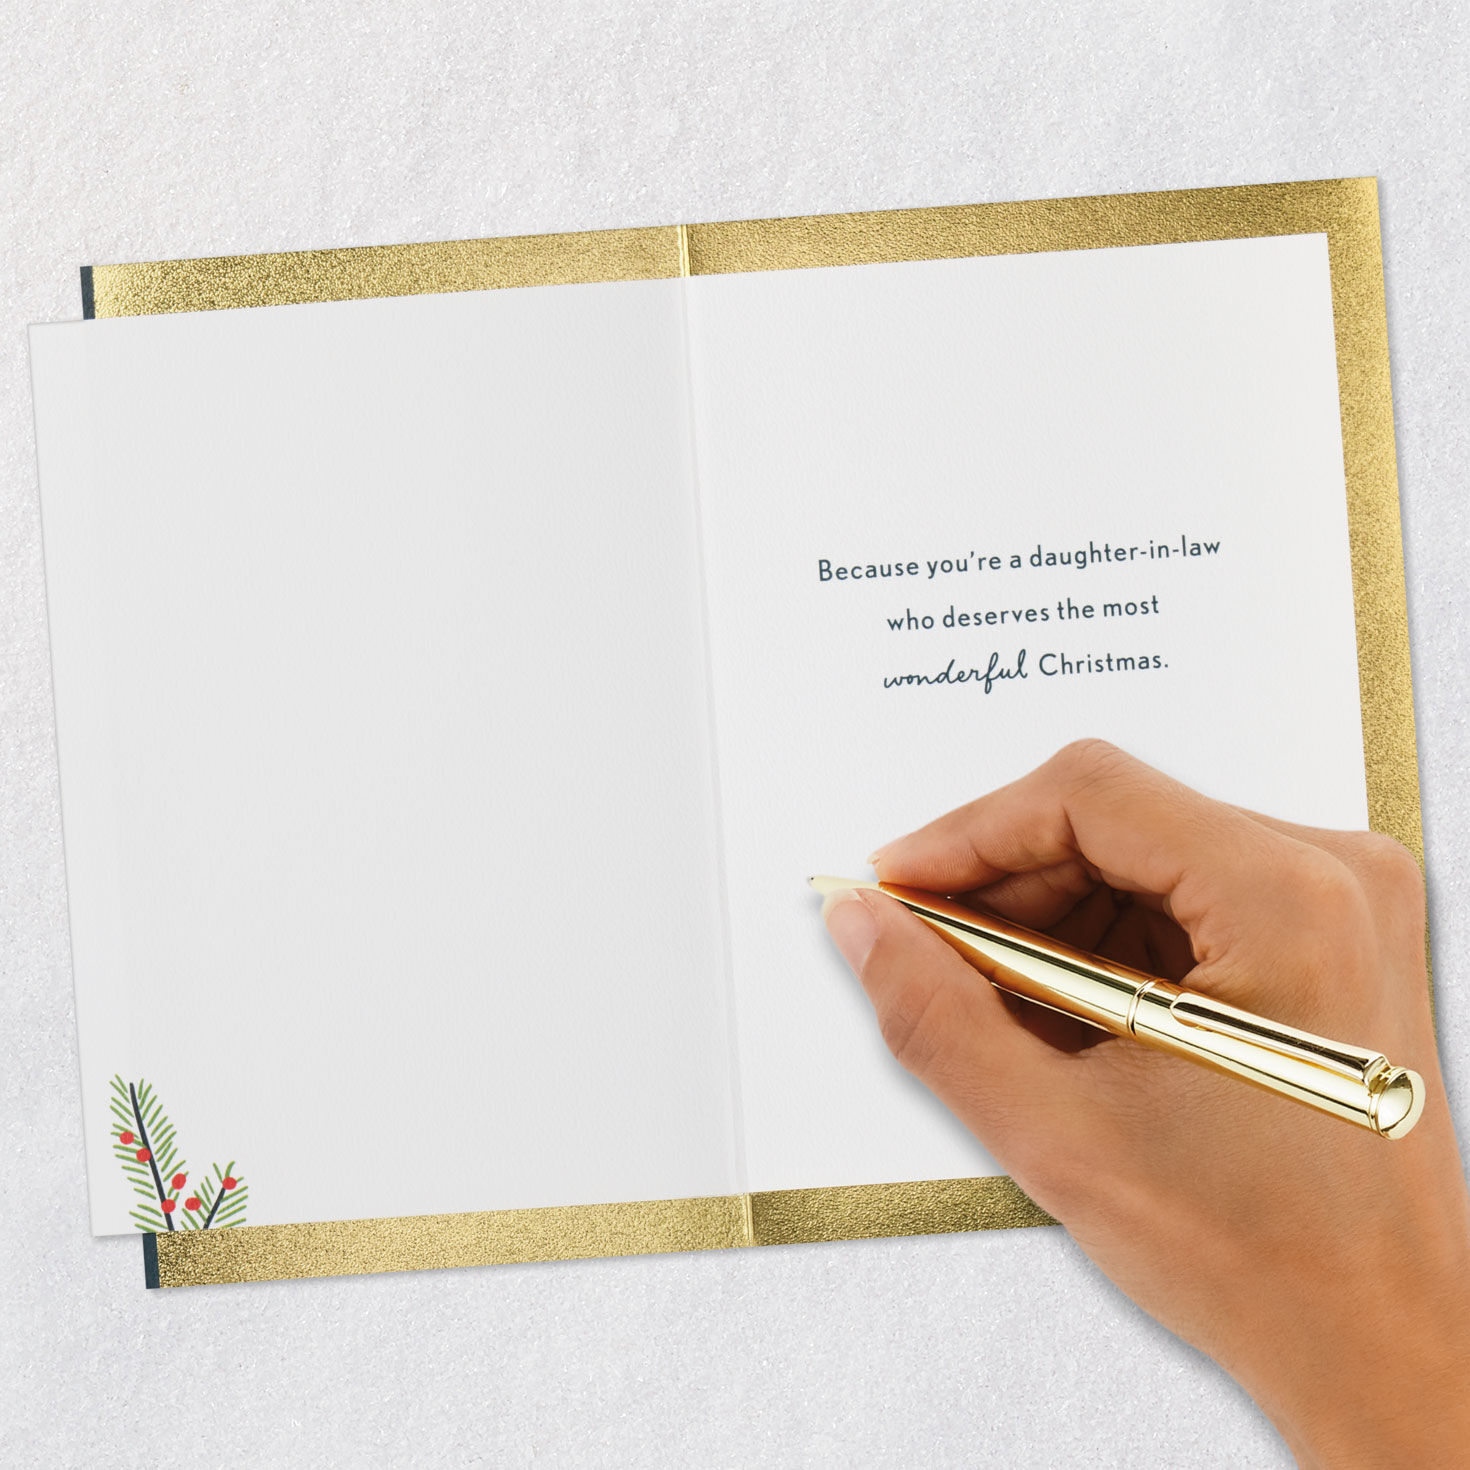 Because you're a daughter-in-law
who deserves the most
wonderful Christmas.